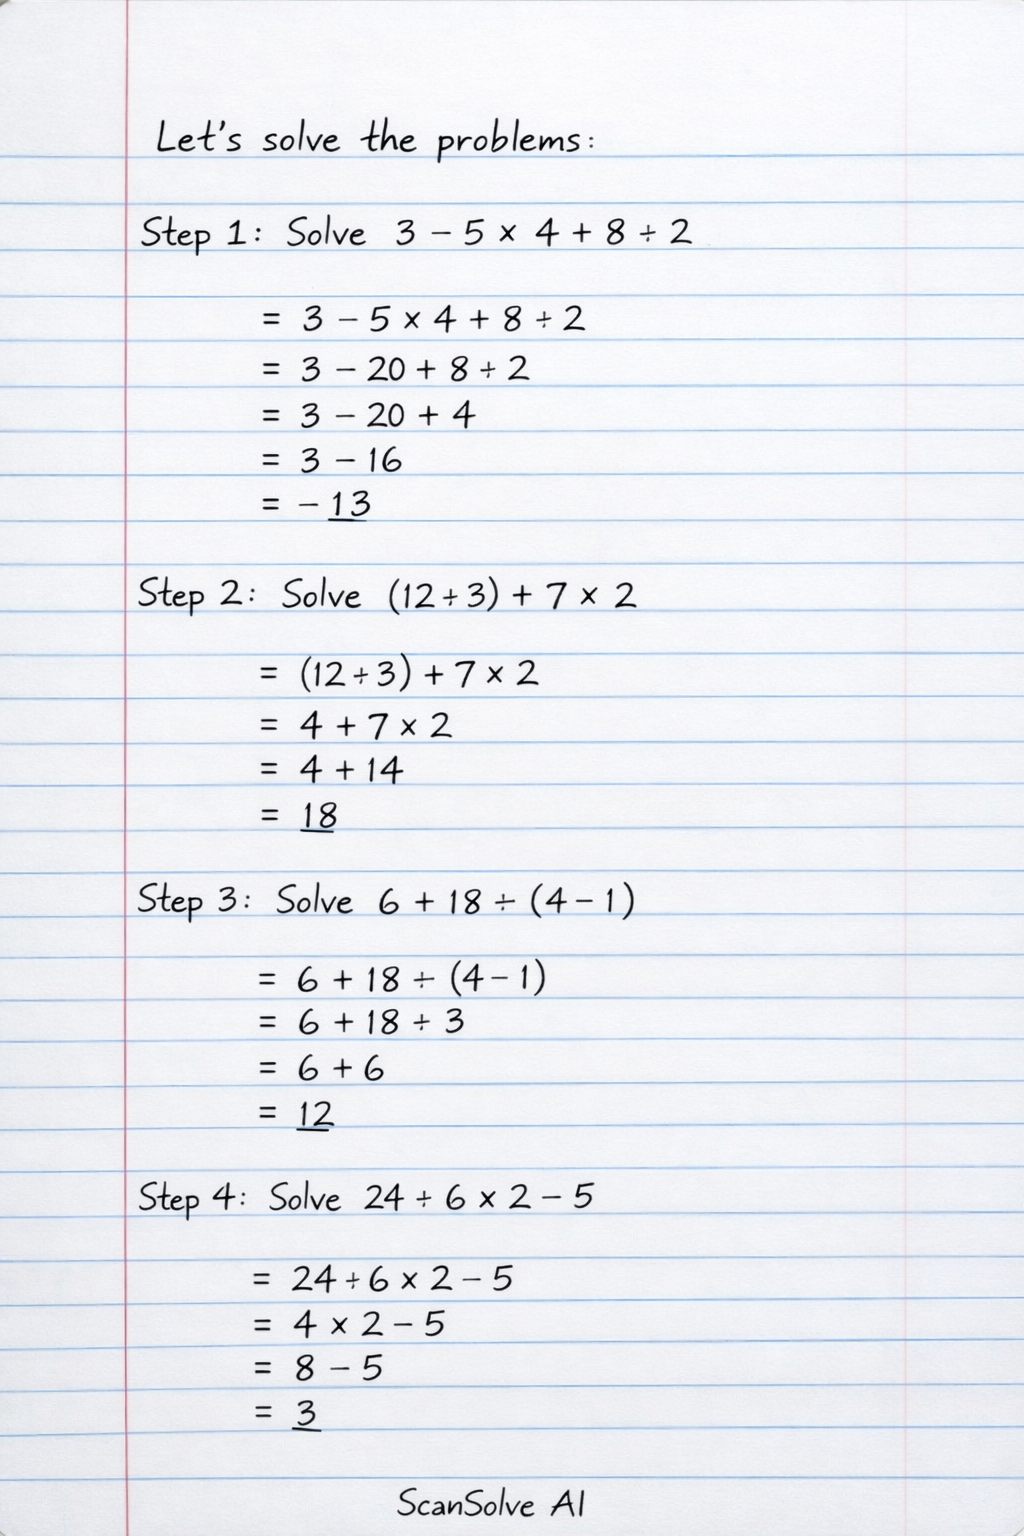 Let's solve the problems:
Step 1: Solve 3 − 5 × 4 + 8 ÷ 2
= 3 − 5 × 4 + 8 ÷ 2
= 3 − 20 + 8 ÷ 2
= 3 − 20 + 4
= 3 − 16
= − 13
Step 2: Solve (12÷3) + 7 × 2
= (12÷3) + 7 × 2
= 4 + 7 × 2
= 4 + 14
= 18
Step 3: Solve 6 + 18 ÷ (4 − 1)
= 6 + 18 ÷ (4 − 1)
= 6 + 18 ÷ 3
= 6 + 6
= 12
Step 4: Solve 24 ÷ 6 × 2 − 5
= 24 ÷ 6 × 2 − 5
= 4 × 2 − 5
= 8 − 5
= 3
ScanSolve AI